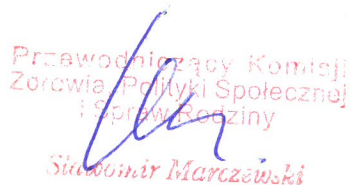 Przewodniczący Komisji
Zdrowia, Polityki Społecznej
i Spraw Rodziny
Sławomir Marczewski